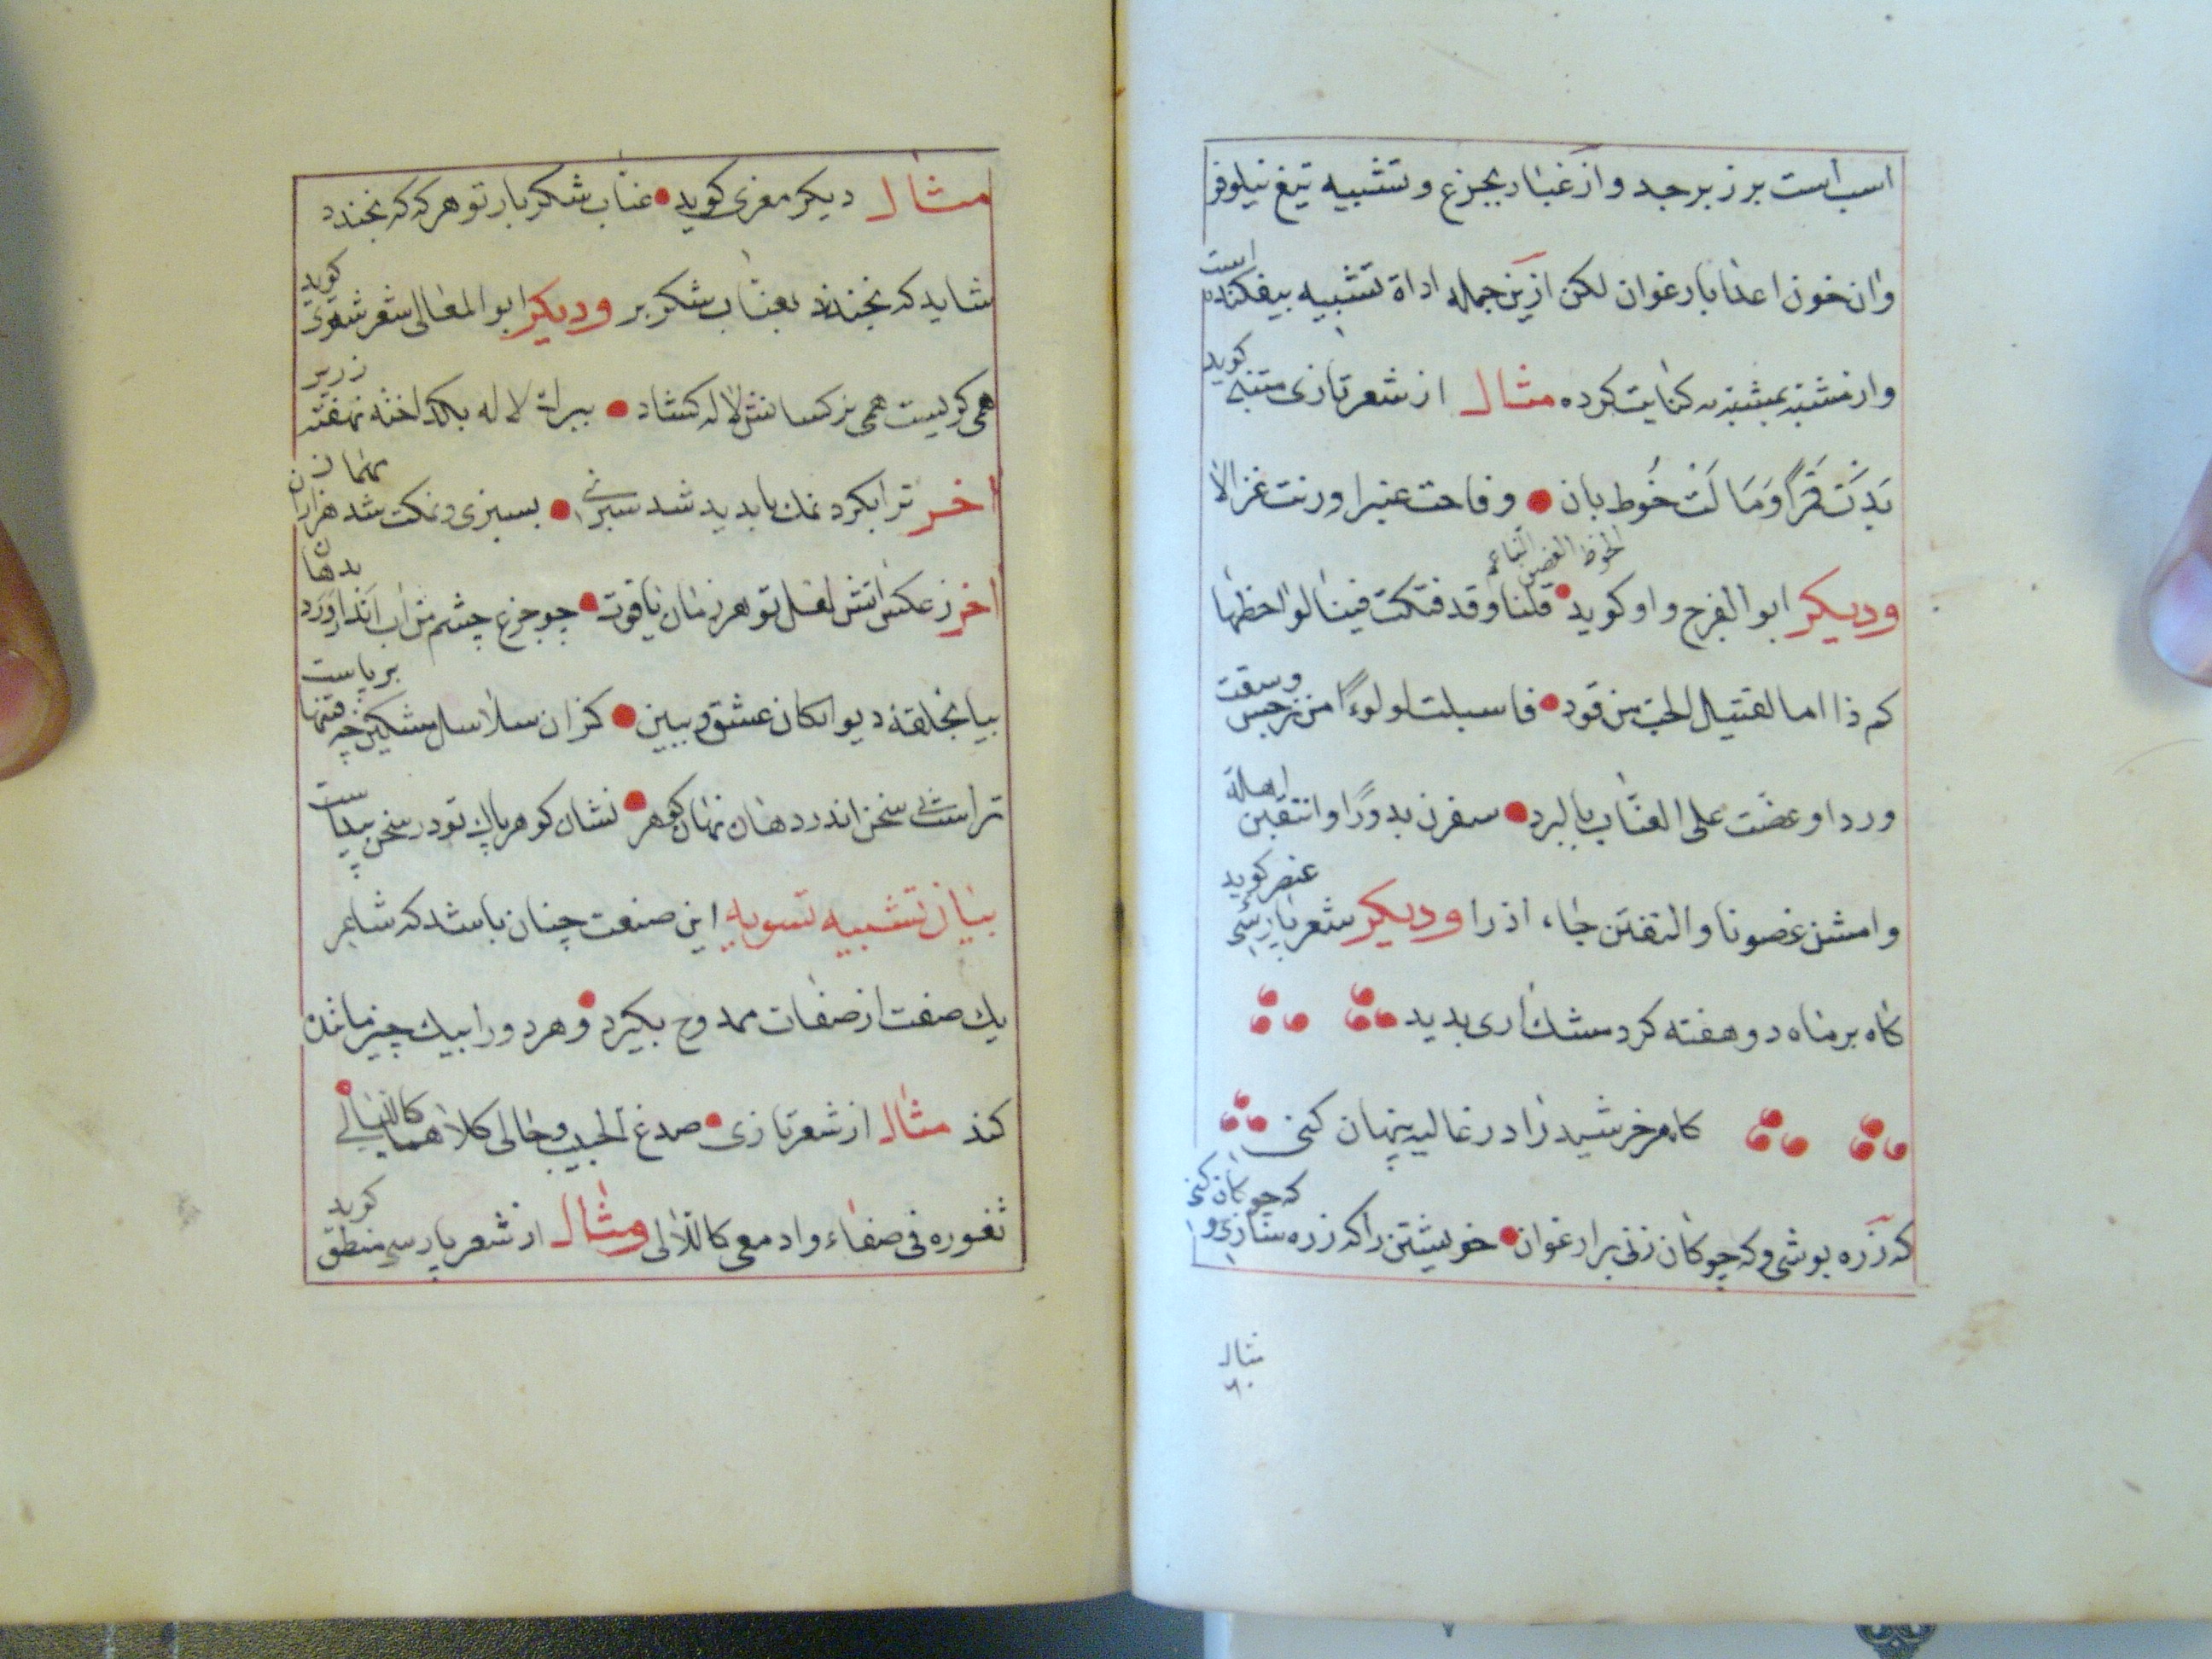 اسب است بر زبرجد و از غبار بجزع و تشبیه تیغ نیلوفر
وان خون اعدا بارغوان لکن ازین جمله اداة تشبیه بیفکنده است
واز مشبه بمشبه به کنایت کرده مثال از شعر تازی متنبی کوید
بَدَت قمرًا وَمَالَت خُوط بان • وفاحت عنبرا ورنت غزالا
الخوط الغصن الناعم
ودیکر ابو الفرج واو کوید • قلنا وقد فتکت فینا لواحظها
کم ذا اما لقتیل الحب من قود • فاسبلت لولوءًا من نرجس وسقت
وردا وعضت علی العناب بالبرد • سفرن بدورًا وانتقبن اهلة
وامشن غصونا والتفتن جاءاذرا ودیکر شعر پارسی عنصر کوید
کاه بر ماه دو هفته کرد مشک اری بدید
کاه مر خرشید را در غالیه پنهان کنی
که زره پوشی وکه چوکان زنی بر ارغوان • خویشتن را که زره سازی و که چوکان کنی
مثال
مثال دیکر مغزی کوید • عناب شکر بار تو هر که که بخندد
شاید که بخندند بعناب شکر بر ودیکر ابو المعالی شعر شعوی کوید
همی کریست همی نرکسانش لاله کشاد • ببرات لاله بکداخته نهفته زریر
اخر ترا بکرد نمك با بدید شد سبزی • بسبزی ونمکت شد هزاران مهمان
اخر زعکس اتش لعل تو هر زمان یاقوت • چو جزع چشم من اب اندر اورد بدهان
بیا بحلقه دیوانکان عشق وببین • کزان سلاسل مشکین چه فتنها برپاست
تراست سخن اندر دهان نهان کوهر • نشان کوهر پاك تو در سخن پیداست
بیان تشبیه تسویه این صنعت چنان باشد که شاعر
یك صفت از صفات ممدوح بکیرد وهر دو را بیك چیز مانند
کند مثال از شعر تازی • صدغ الحبیب وحالی کلاهما کاللیالی
ثغوره فی صفاء وادمعی کاللآلی ومثال از شعر پارسی منطق کوید